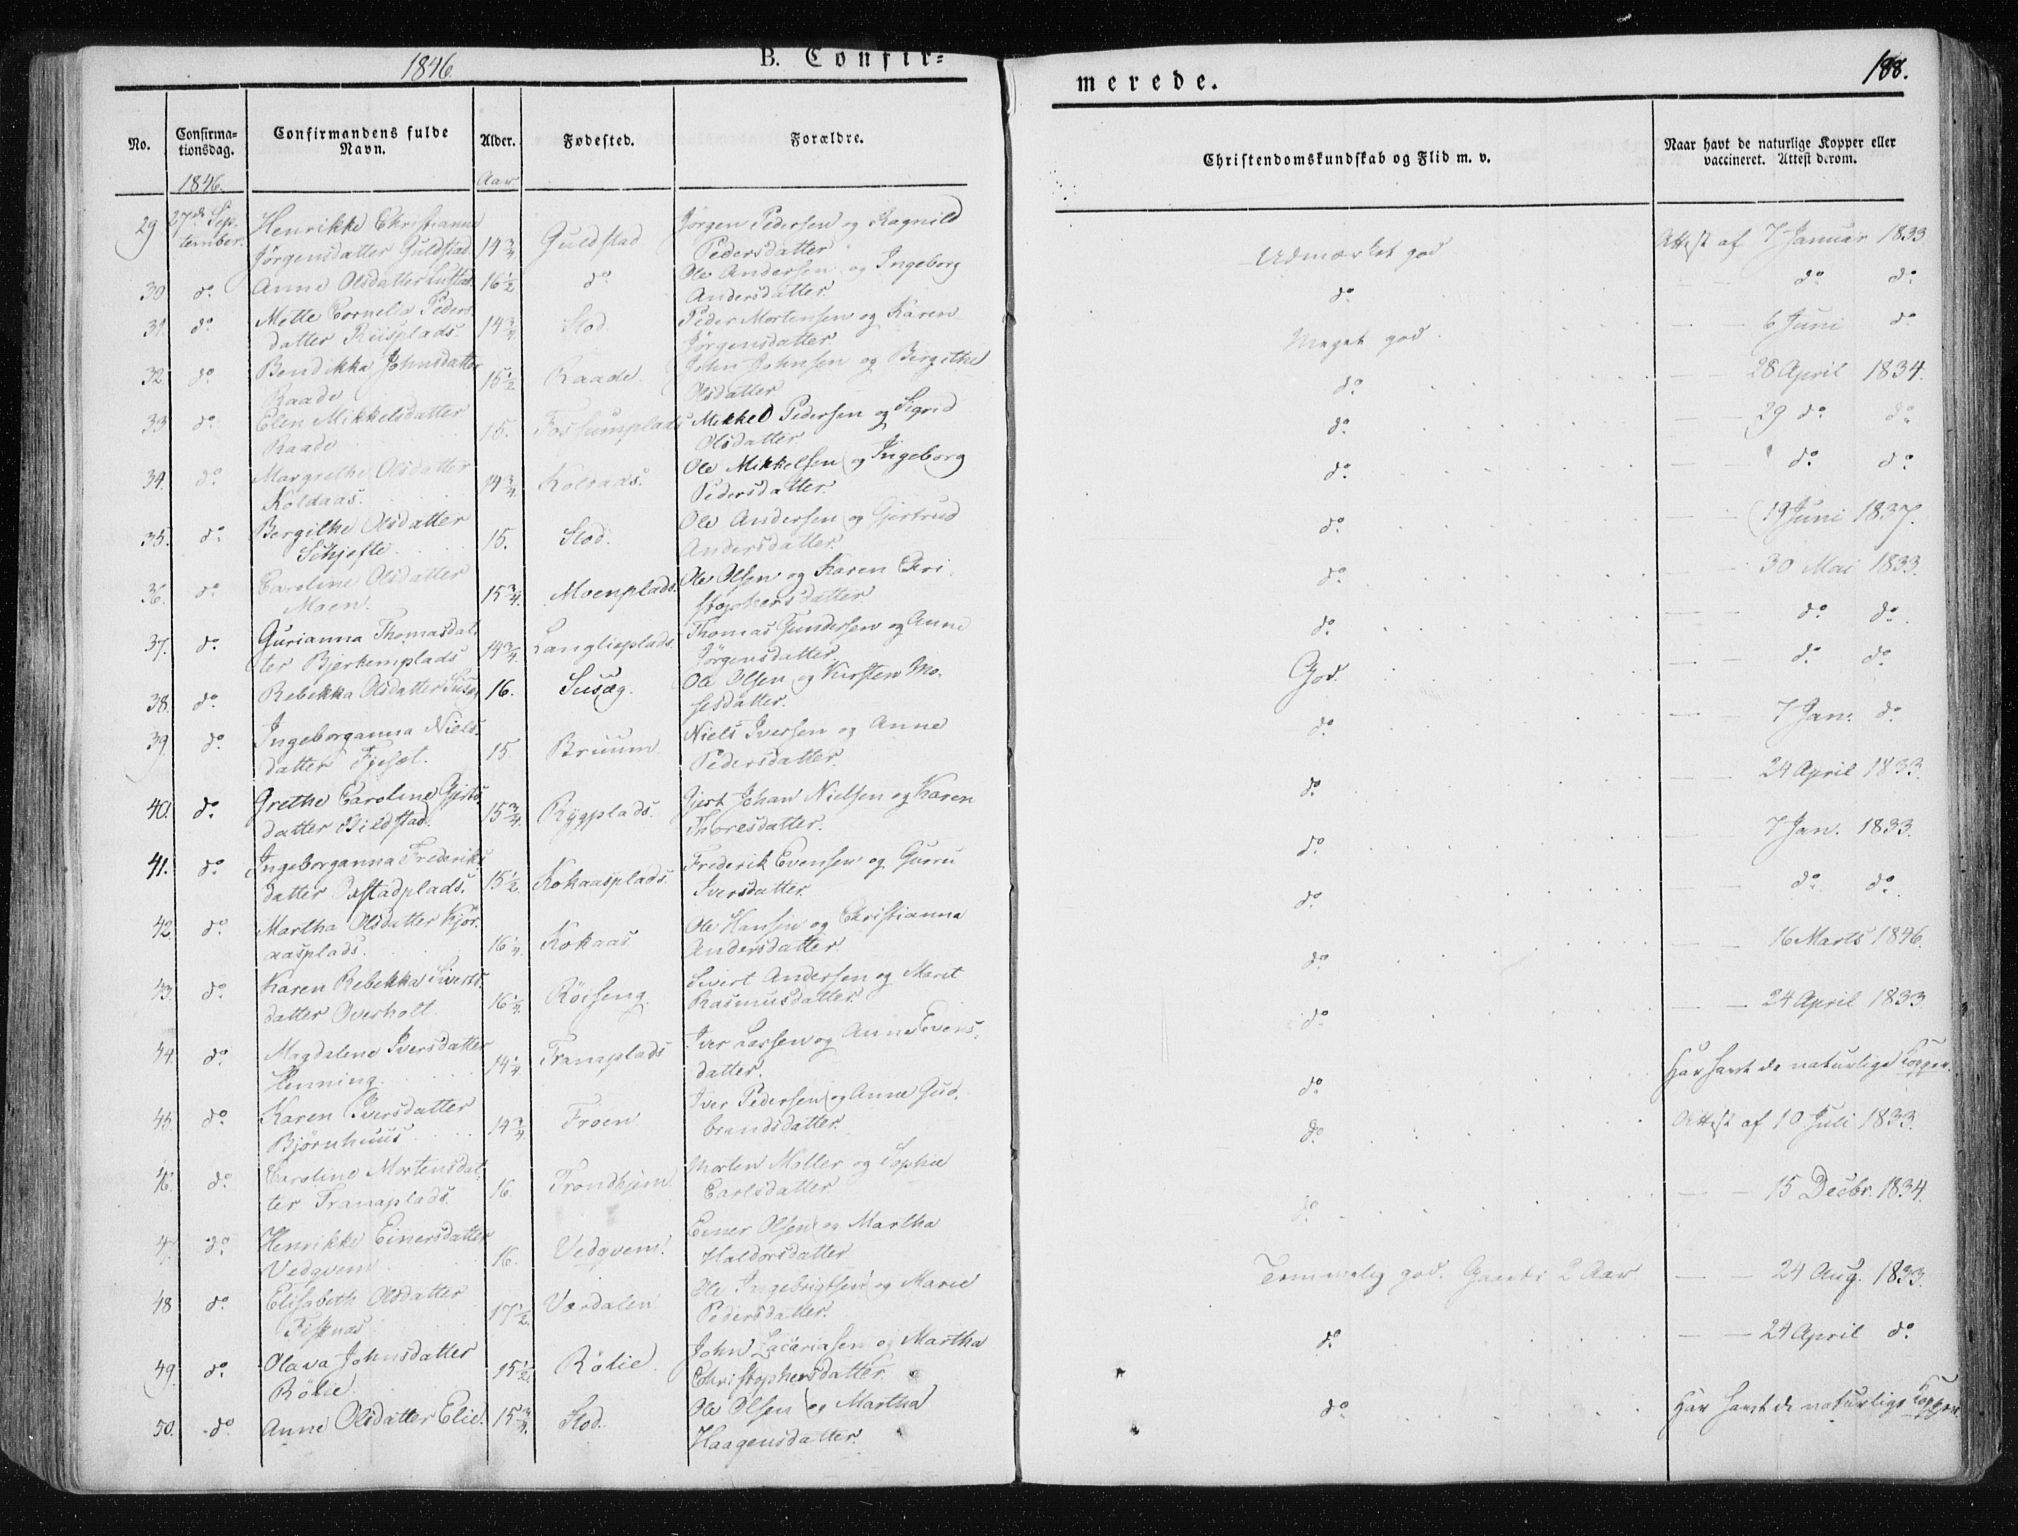 1846.
B. Confir=
merede.
188.
No.
Confirma-
tionsdag.
Confirmandens fulde
Navn.
Alder.
Fødested.
Forældre.
Christendomskundskab og Flid m. v.
Naar havt de naturlige Kopper eller
vaccineret. Attest derom.
1846.
Aar
29 27de Sep- Henrikke Christianna Jørgen Pedersen og Ragnild
tember. Jørgensdatter Guldstad 14 3/4 Guldstad Pedersdatter Udmærket god Attest af 7 Januar 1833
30 do Anne Olsdatter 16 1/2 do Ole Andersen og Ingeborg
Andersdatter. do — — do do
31. do Mette Cornelia Peders 14 3/4 Stod. Peder Mortensen og Karen
datter Riisplads. Jørgensdatter Meget god. — — 6 Juni do
32. do Bendikka Johnsdatter 15 1/2 Raade. John Johnsen og Birgithe
Raade Olsdatter do — — 28 April 1834.
33 do Elen Mikkelsdatter 15. Fossumplads Mikkel Pedersen og Sigrid
Raade Olsdatter. do — 29 do do
34. do Margrethe Olsdatter 14 3/4 Kolaas. Ole Mikkelsen og Ingeborg
Koldaas. Pedersdatter. do — — do do
35. do Bergithe Olsdatter 15. Stod. Ole Andersen og Gjertrud
Schjefte Andersdatter. do — — 19 Juni 1837.
36. do Caroline Olsdatter 15 3/4. Moenplads. Ole Olsen og Karen Chri-
Moen. stophersdatter do — — 30 Mai 1833.
37. do Gurianna Thomasdat- 14 3/4. Langlieplads. Thomas Gundersen og Anne
ter Bjerkemplads Jørgensdatter do — — do do
38. do Rebekka Olsdatter Susæg 16. Susæg. Ole Olsen og Kirsten Mo-
sesdatter. God. — — do do
39. do Ingeborganna Niels- 15. Bruum. Niels Iversen og Anne
datter Fjesæt. Pedersdatter. do — — 7 Jan. do
40. do Grethe Caroline Gjerts- 15 3/4. Rygplads. Gjert Johan Nielsen og Karen
datter Bildstad. Thoresdatter. do — — 24 April 1833.
41. do Ingeborganna Frederiks- 15 1/2. Kokaasplads. Frederik Evensen og Guru
datter Iversdatter do — — 7 Jan. 1833.
42. do Martha Olsdatter Kjør- 16 1/4 Kokaas Ole Hansen og Christianna
aasplads. Andersdatter. do — — do do
43. do Karen Rebekka Siverts- 16 1/4. Røiseng. Sivert Andersen og Marit
datter Overholt. Rasmusdatter do — — 16 Marts 1846.
44. do Magdalene Iversdatter 14 1/4 Tranaplads Iver Lassen og Anne Evens-
Henning. datter. do — — 24 April 1833
45. do Karen Iversdatter 14 3/4 Froen Iver Pedersen og Anne Gud-
Bjørnhuus. brandsdatter. do Har havt de naturlige Kopper.
46. do Caroline Mortensdat- 16. Trondhjem. Morten Møller og Sophie
ter Tranaplads. Carlsdatter do Attest af 10 Juli 1833.
47 do Henrikke Einersdatter 16. Vedqvem. Einer Olsen og Martha
Vedqvem Haldorsdatter do — — 15 Decbr. 1834.
48 do Elisabeth Olsdatter 17 1/2. Værdalen Ole Ingebrigtsen og Marie
Fisknæs Pedersdatter. Temmelig god. 2 Aar. — — 24 Aug. 1833.
49. do Olava Johnsdatter 15 1/2. Rølie. John Zacariasen og Martha
Rølie. Christophersdatter. do — — 24 April do
50. do Anne Olsdatter Elie. 15 3/4. Stod. Ole Olsen og Martha
Haagensdatter. do Har havt de naturlige Kopper.